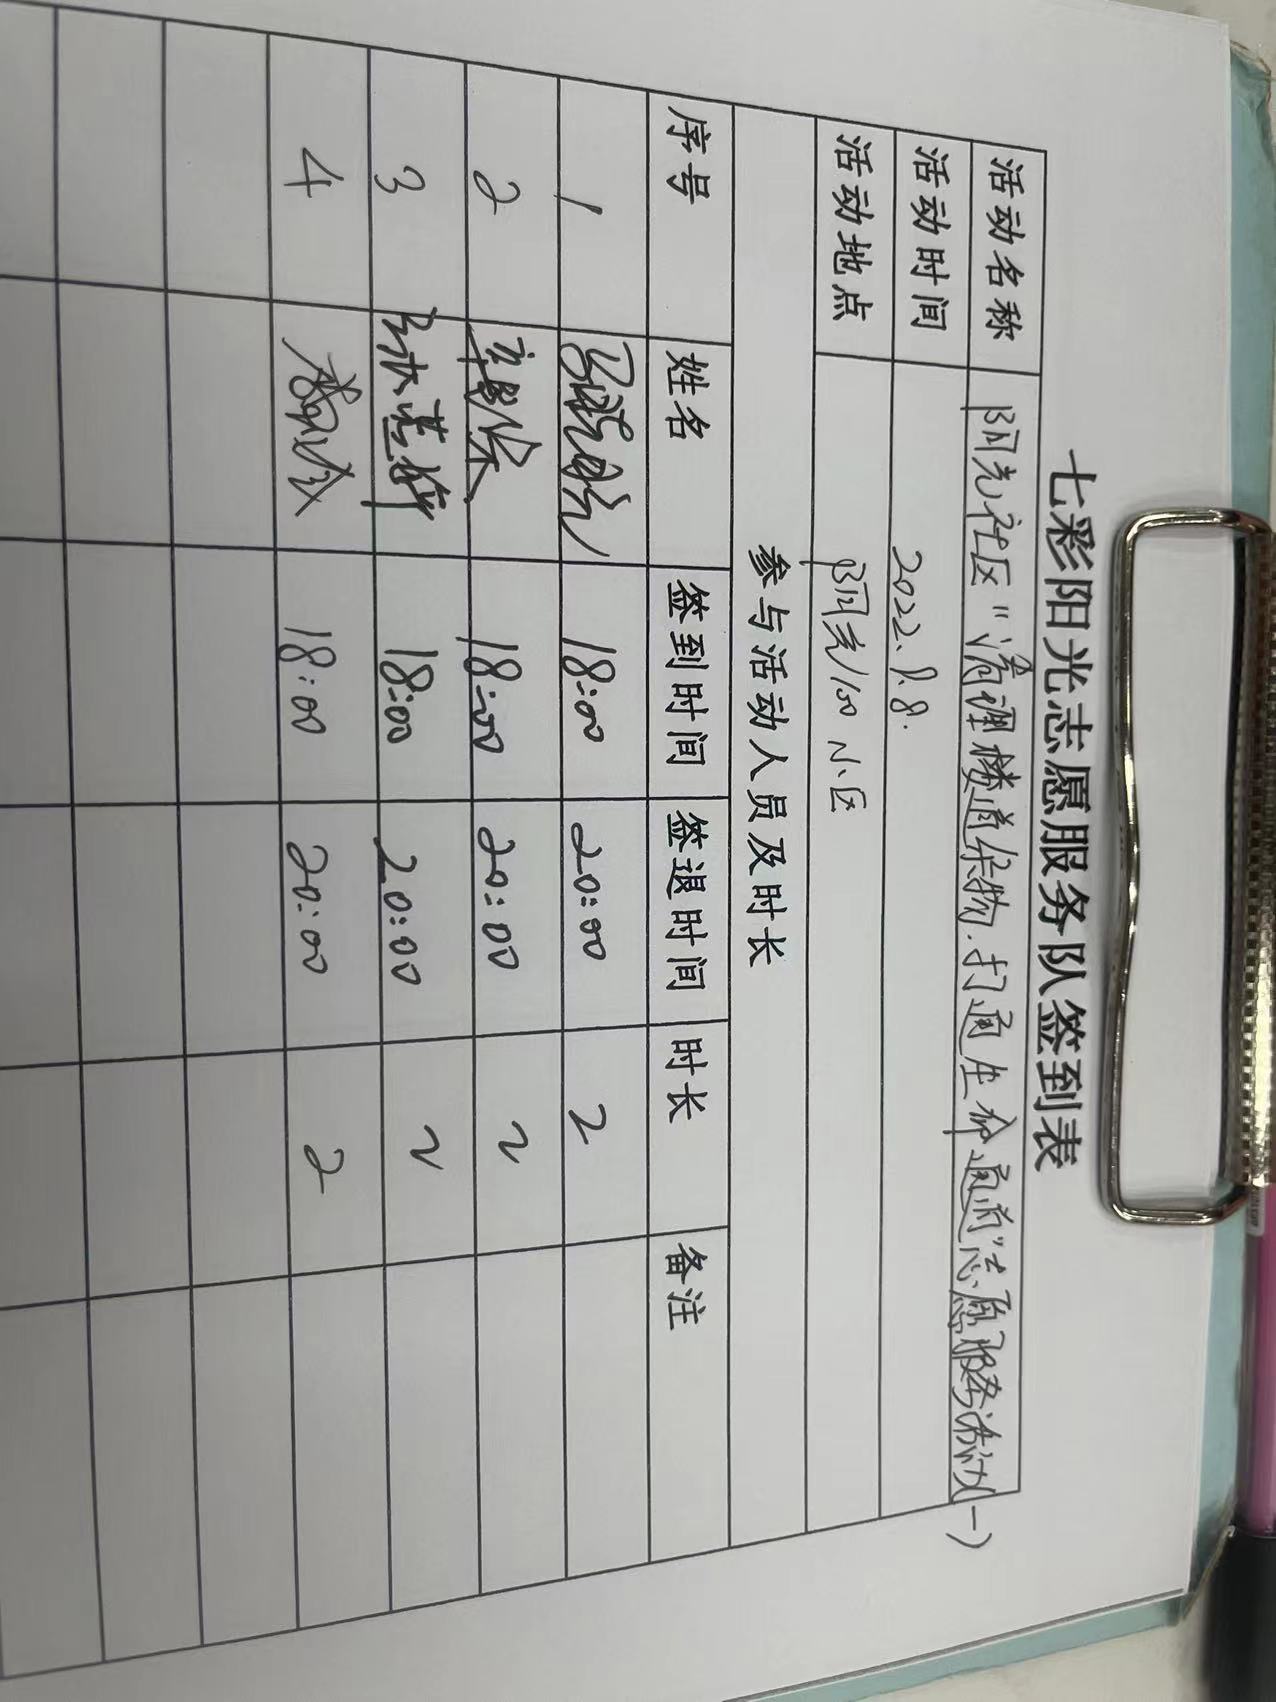 七彩阳光志愿服务队签到表
活动名称 阳光社区“清理楼道杂物.打通生命通道”志愿服务活动(一)
活动时间 2022.8.8.
活动地点 阳光100小区
参与活动人员及时长
序号 姓名 签到时间 签退时间 时长 备注
1 18:00 20:00 2
2 18:00 20:00 2
3 18:00 20:00 2
4 18:00 20:00 2